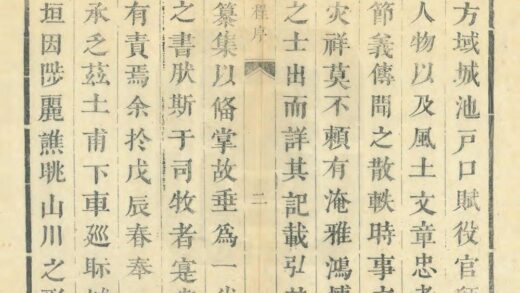 方域城池戶口賦役官
人物以及風土文章忠孝
節義傳聞之散軼時事
灾祥莫不頼有淹雅鴻博
之士出而詳其記載弘
程序
二
纂集以偹掌故垂爲一代
之書肰斯于司牧者寔
有責焉余扵戊辰春奉
承乏茲土甫下車廵眎
垣因陟麗譙眺山川之